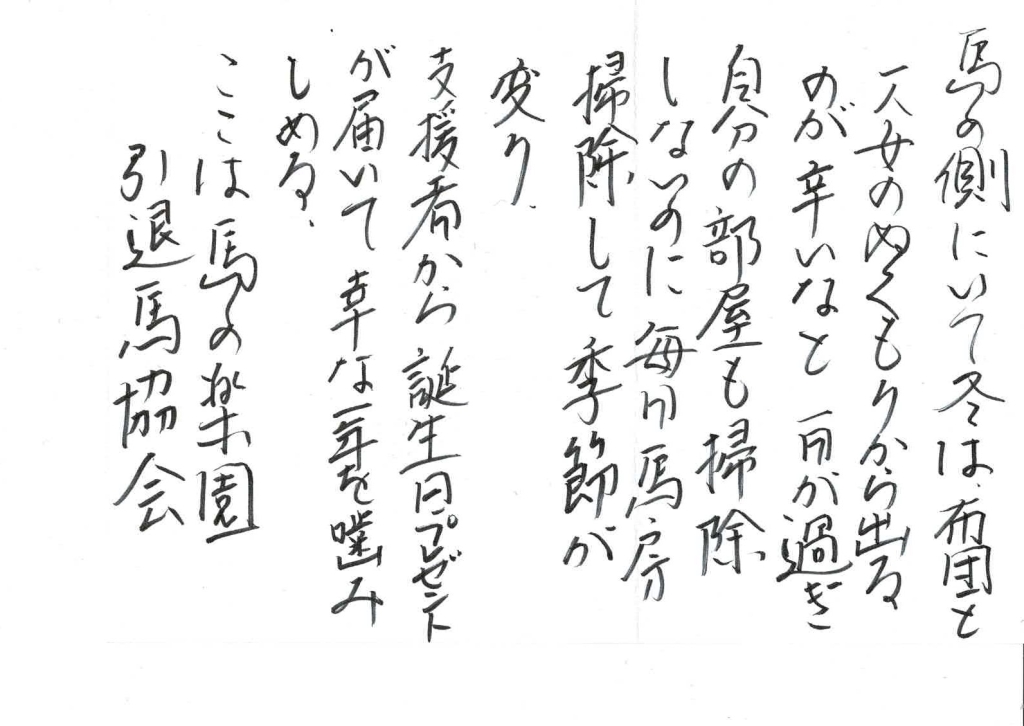 馬の側にいて冬は、布団と
天女のぬくもりから出る
のが辛いなと 一日が過ぎ
自分の部屋も掃除
しないのに毎日馬房
掃除して季節が
変り、
支援者から誕生日プレゼント
が届いて 幸な一年を噛み
しめる、
ここは馬の楽園
引退馬協会